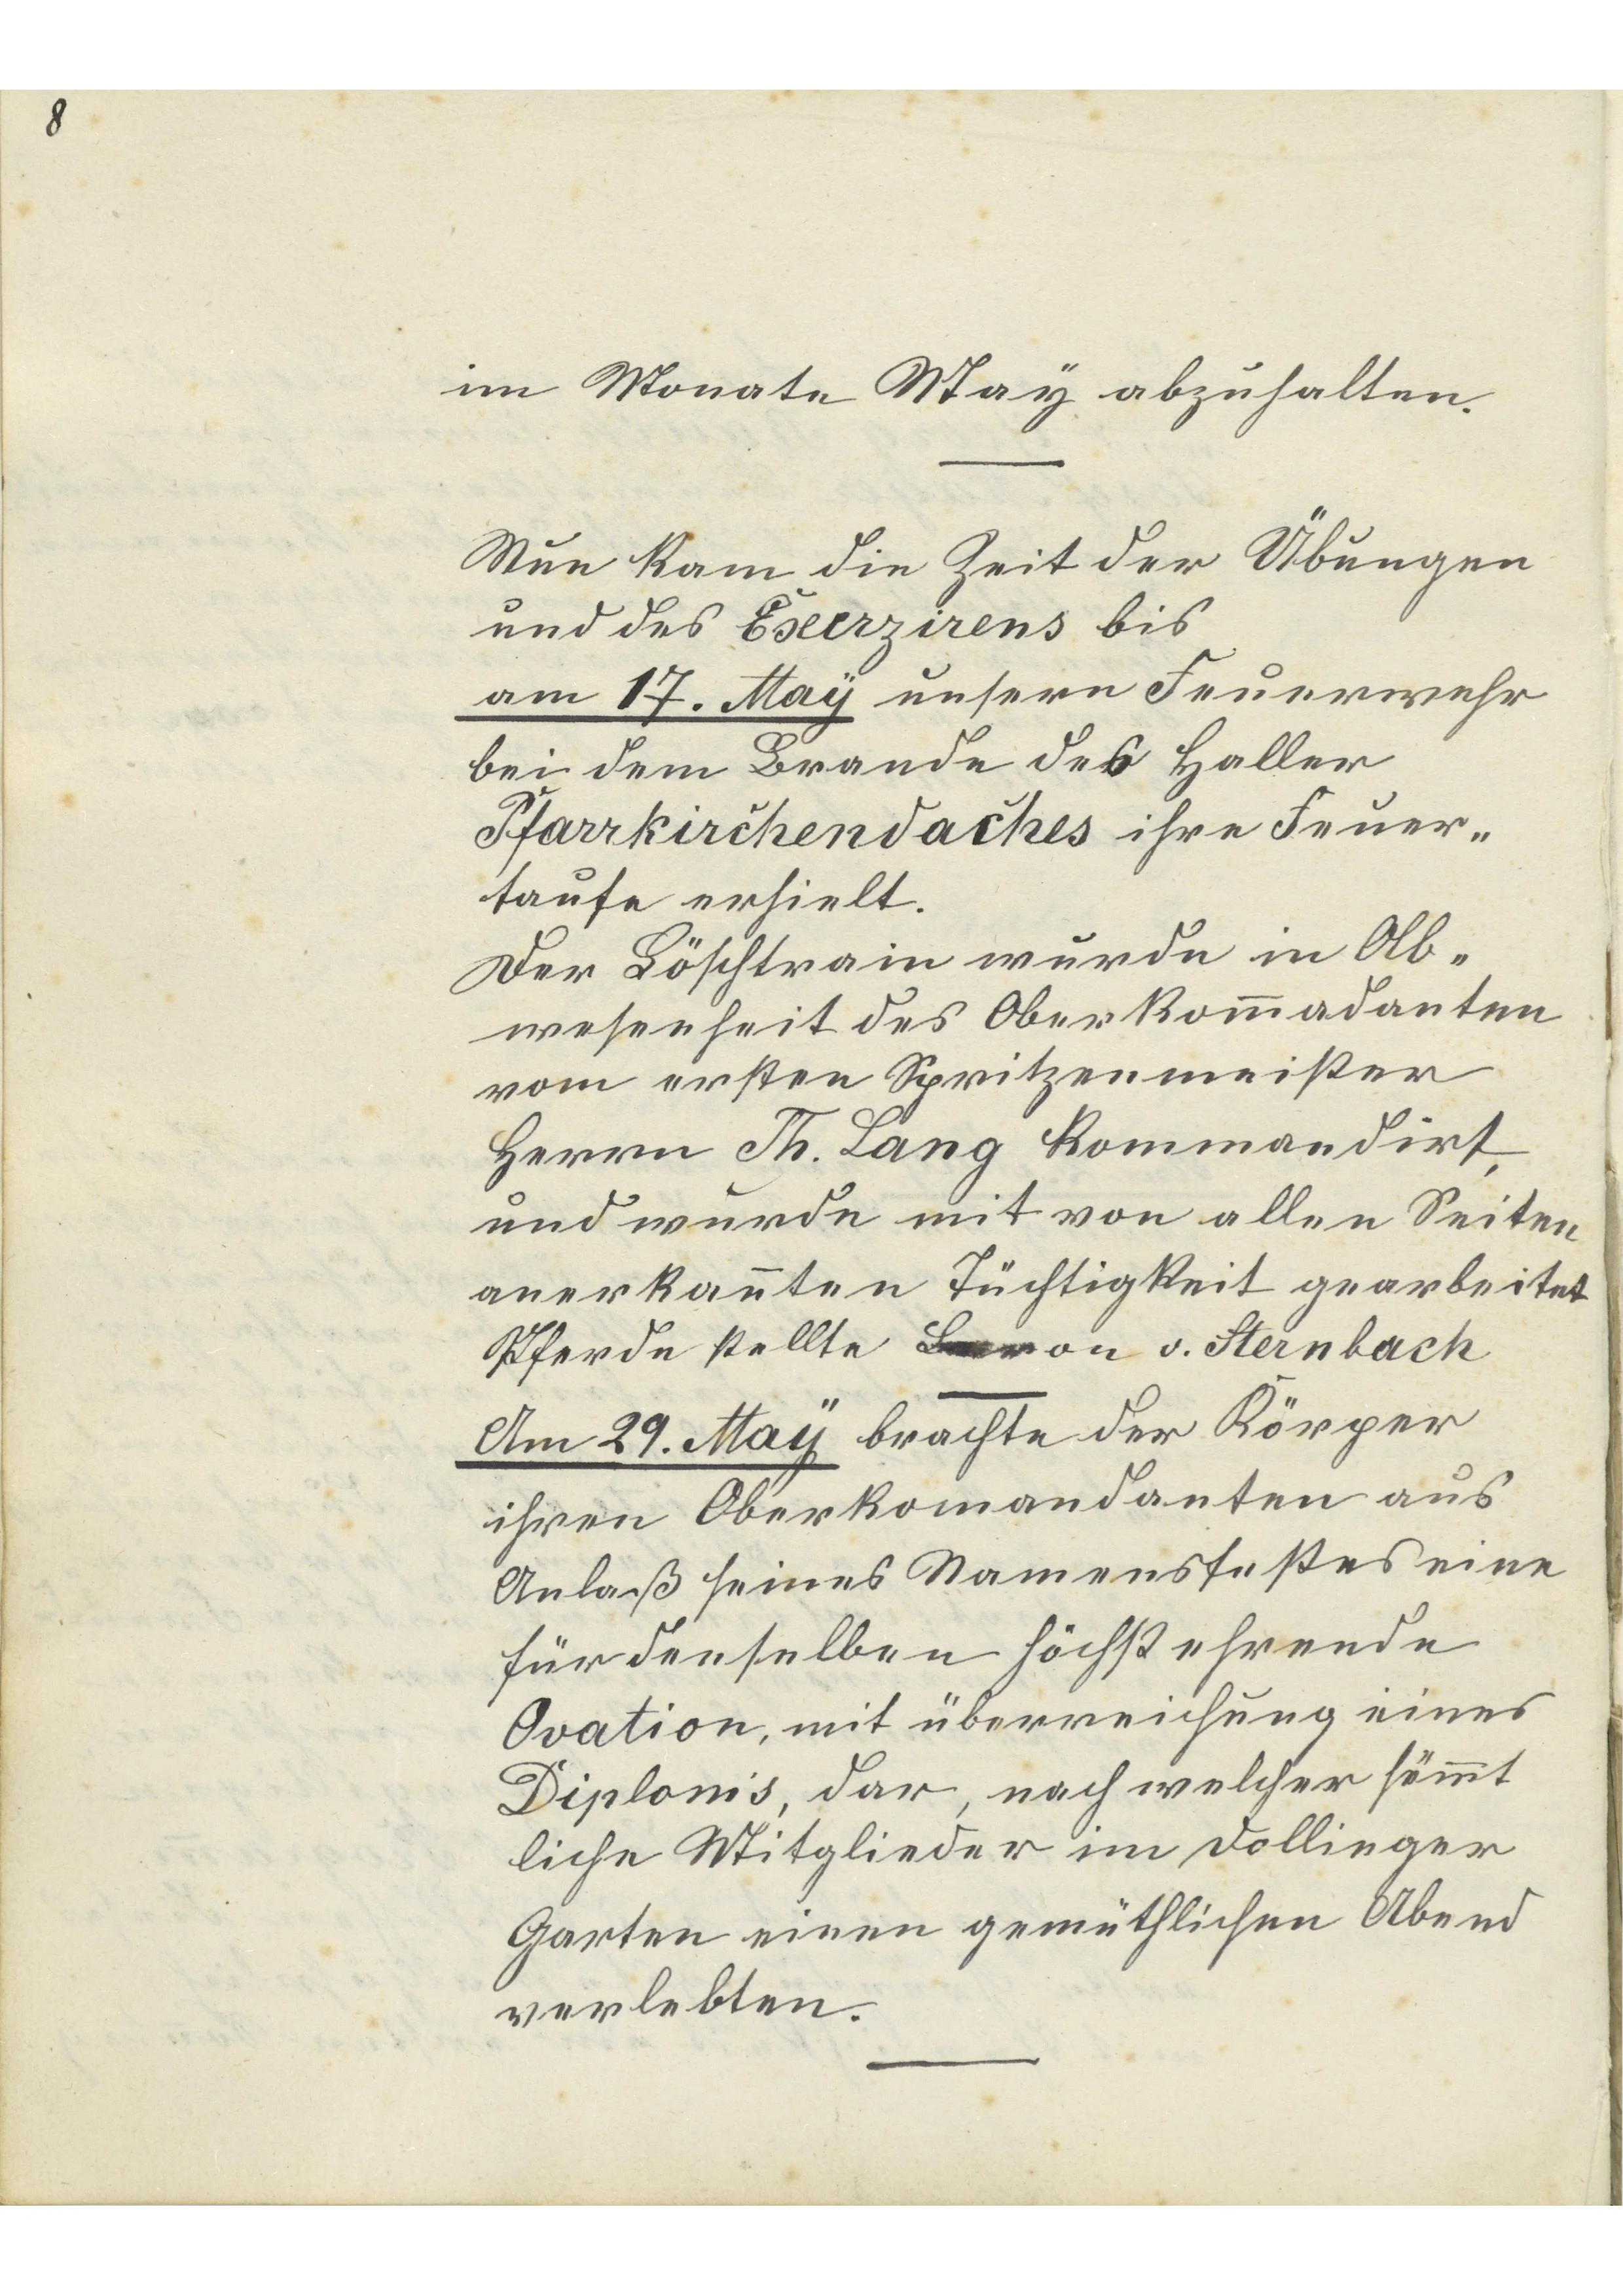 8
im Monate Maÿ abzuhalten.
Nun kam die Zeit der Übungen
und des Exerzirens bis
am 17. Maÿ unsere Feuerwehr
bei dem Brande des Haller
Pfarrkirchendaches ihre Feuer„
taufe erhielt.
Der Löschtrain wurde in Ab„
wesenheit des Oberkom̅adanten
vom ersten Spritzenmeister
Herrn Th. Lang kommandirt,
und wurde mit von allen Seiten
anerkan̅ten Tüchtigkeit gearbeitet
Pferde stellte Baron v. Sternbach
Am 29. Maÿ brachte der Körper
ihren Oberkomandanten aus
Anlaß seines Namensfestes eine
für denselben höchst ehrende
Ovation, mit überreichung eines
Diploms, dar, nach welcher säm̅t
liche Mitglieder im Dollinger
Garten einen gemüthlichen Abend
verlebten.